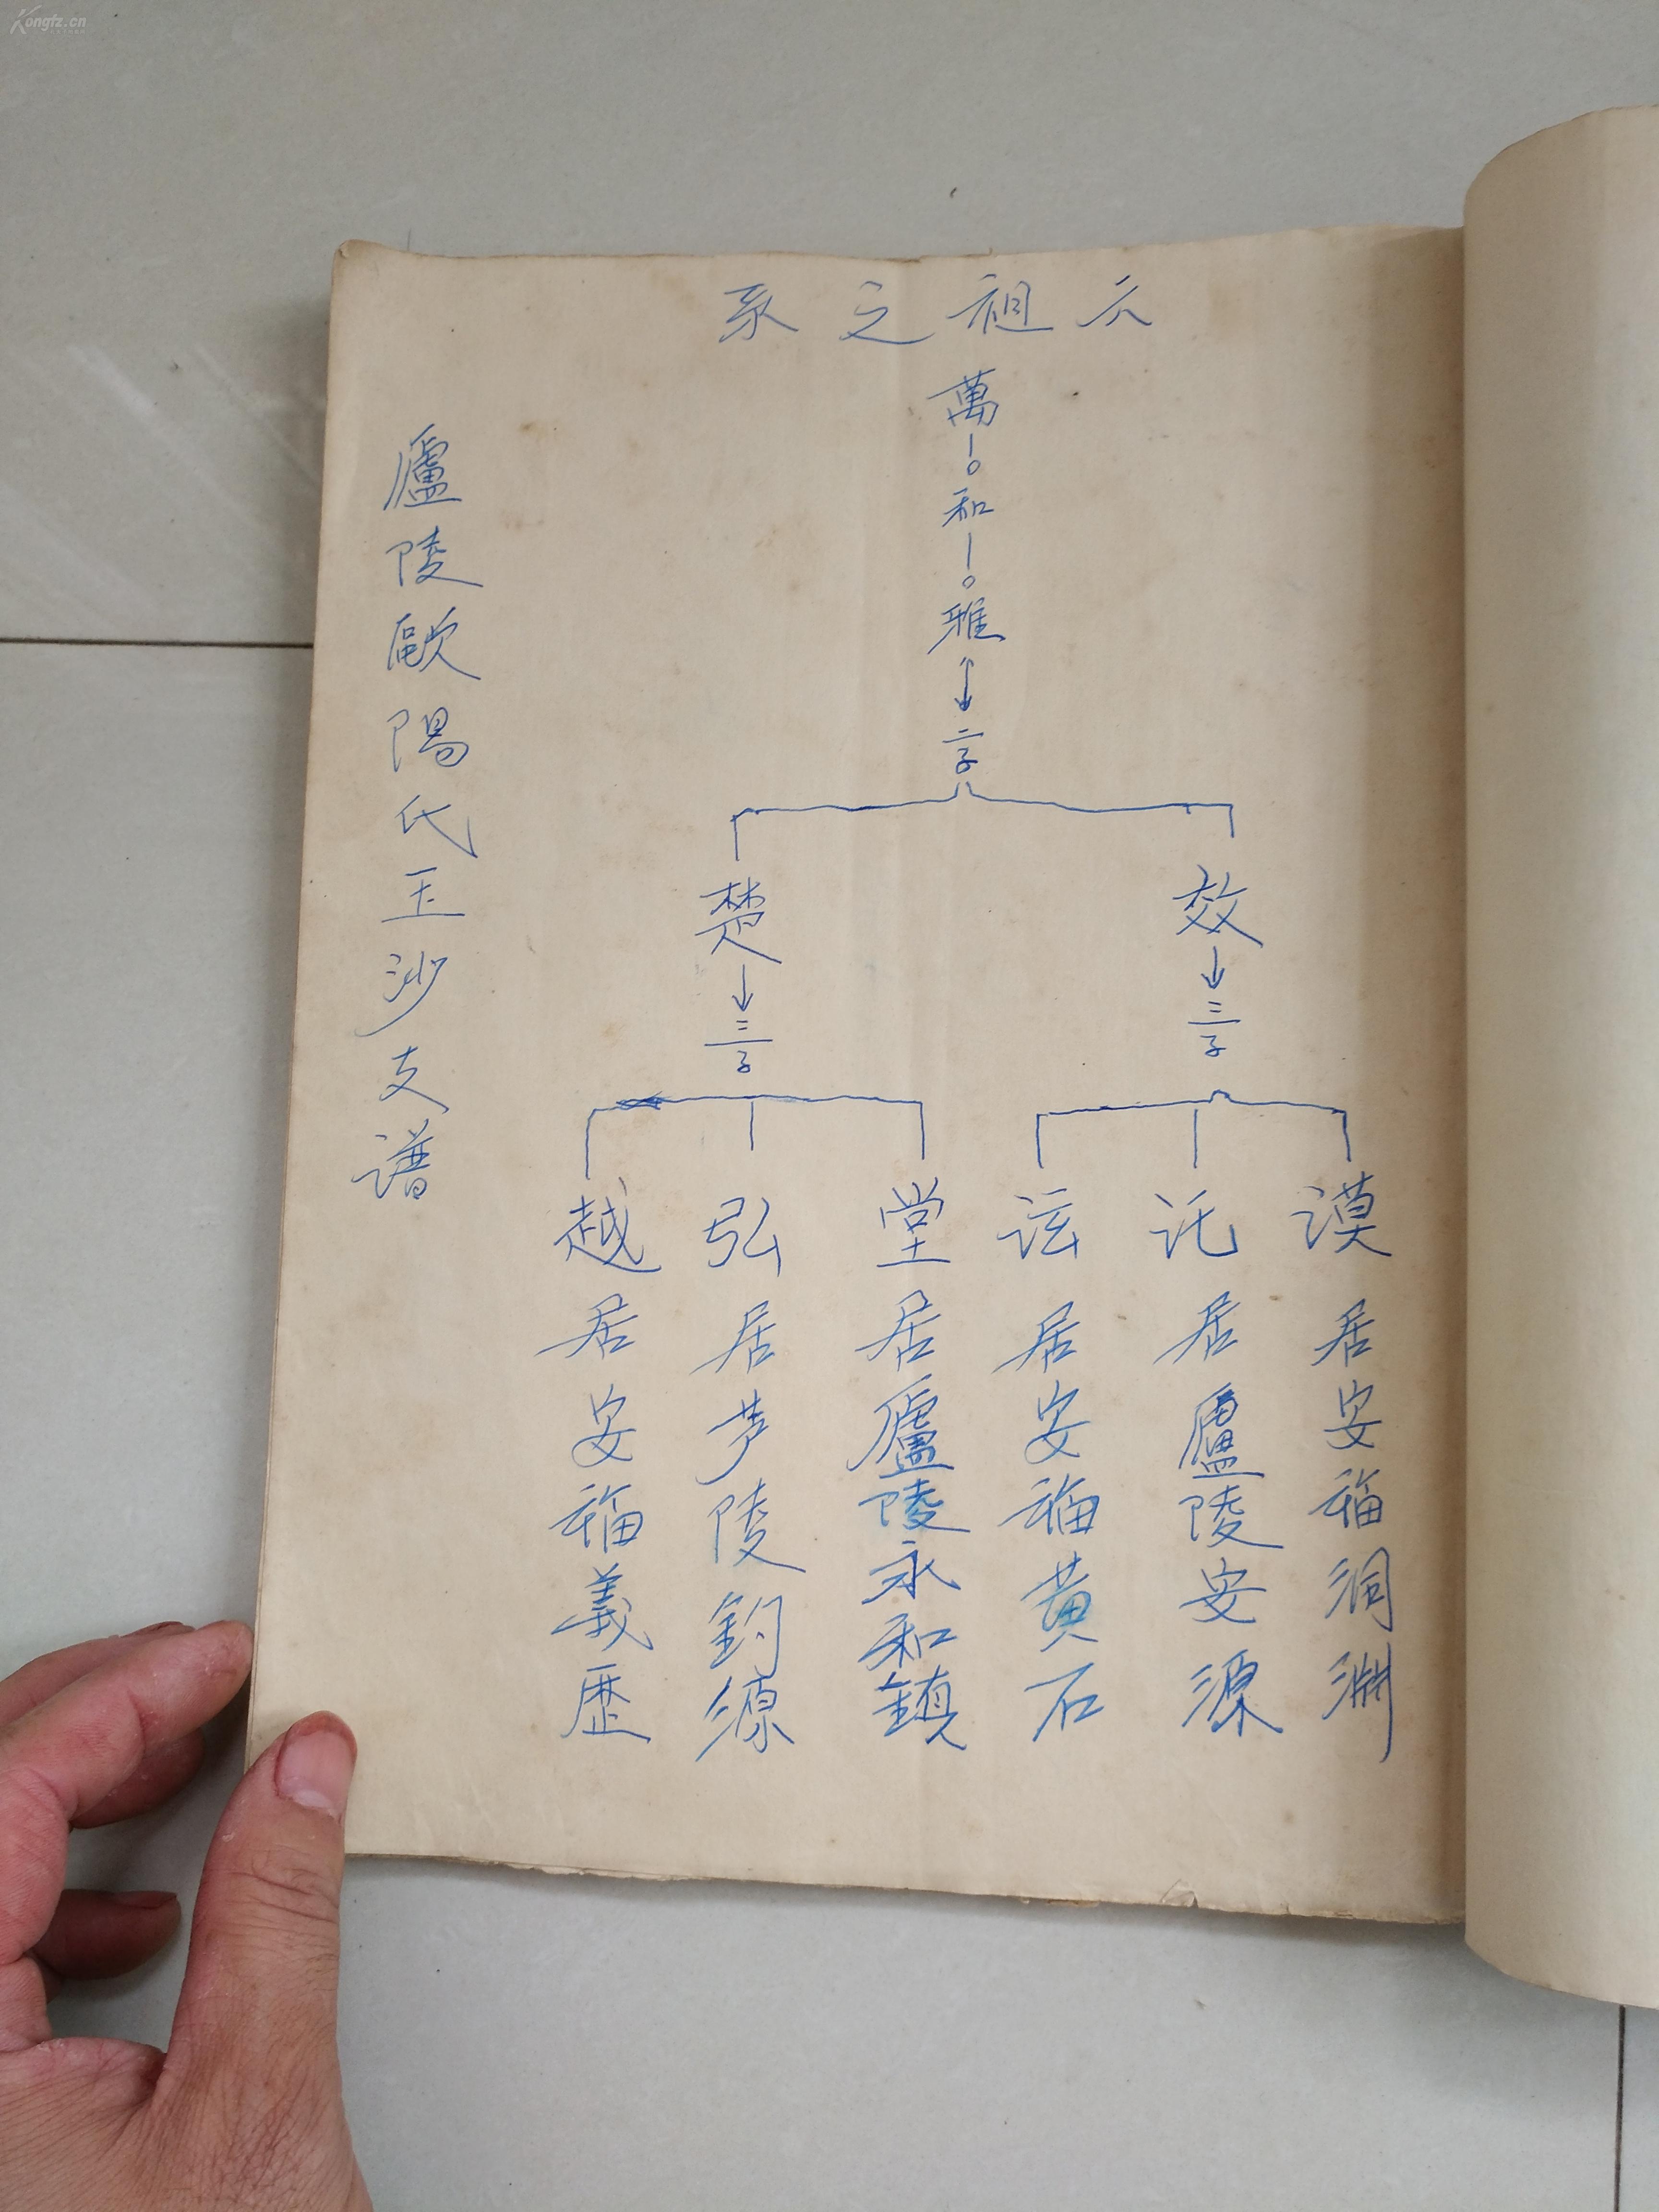 六祖之系
萬
和
雅
二子
效
三子
楚
三子
謨居安福洞淵
託居廬陵安源
訟居安福黃石
堂居廬陵永和鎮
弘居芦陵钓源
越居安福義歷
廬陵歐陽氏玉沙支譜
Kongfz.cn